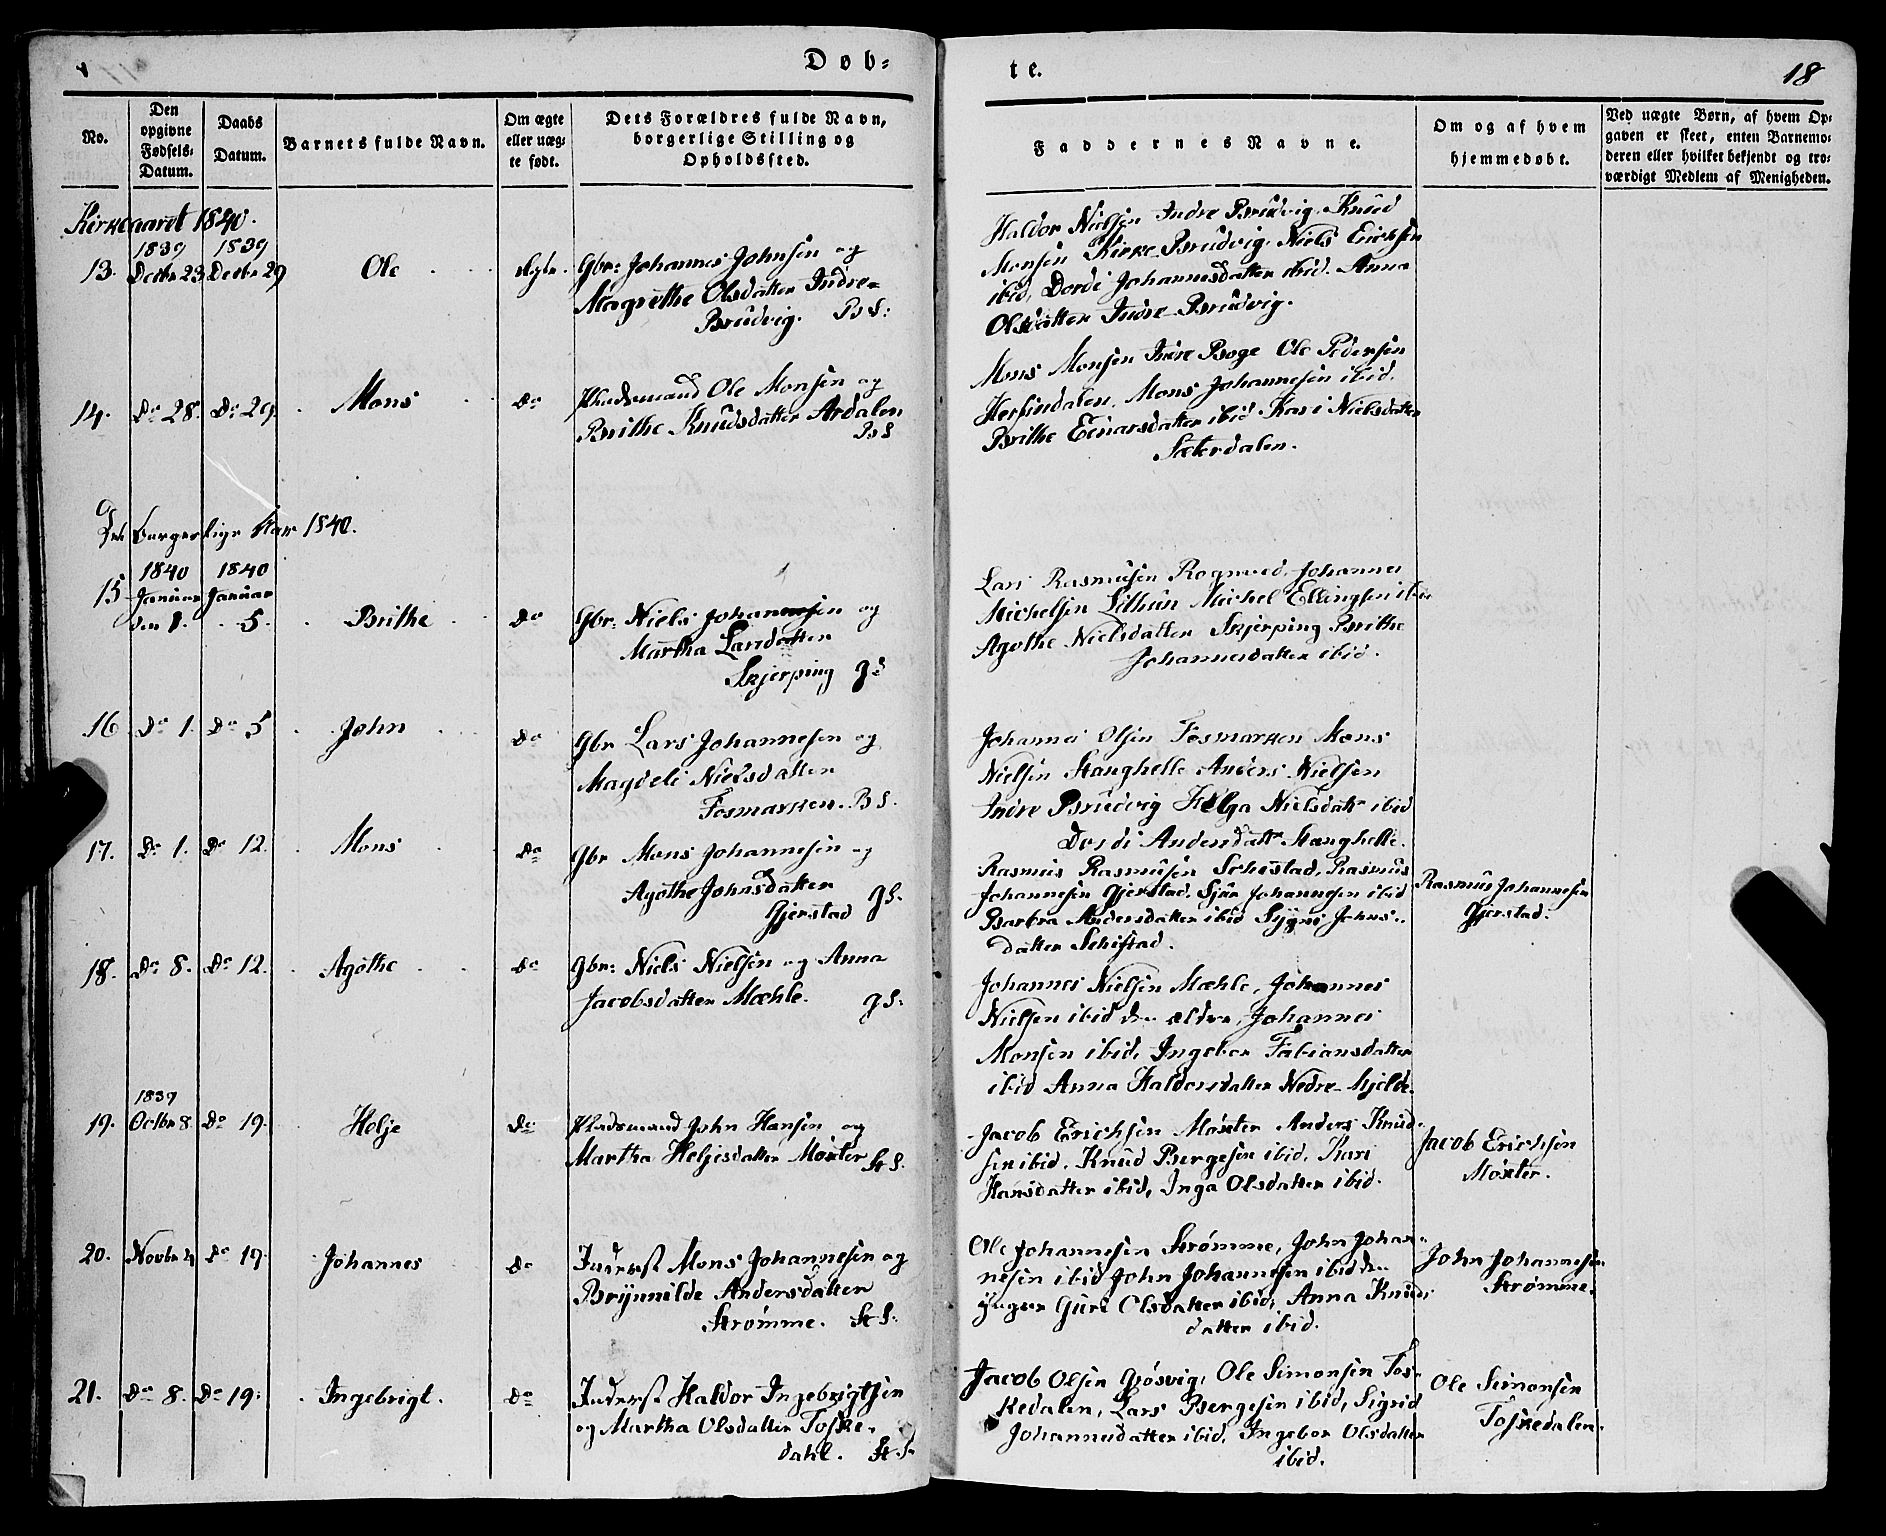 Døb=
te.
18
No.
Den
opgivne
Fødsels=
Datum.
Daabs
Datum.
Barnets fulde Navn.
Om ægte
eller uæg=
te født.
Dets Forældres fulde Navn,
borgerlige Stilling og
Opholdssted.
Faddernes Navne.
Om og af hvem
hjemmedøbt.
Ved uægte Børn, af hvem Op=
gaven er skeet, enten Barnemo=
deren eller hvilket bekjendt og tro=
værdigt Medlem af Menigheden.
Kirkeaaret 1840.
13.
1839
Decbr 23
1839
Decbr 29
Ole
Ægte.
Gbr: Johannes Johnsen og
Magrethe Olsdatter Indre=
Brudvig. BS:
Haldor Nielsen Indre Brudvig. Knud
Monsen Kirke Brudvig. Niels Ericksen
ibid, Dordi Johannesdatter ibid. Anna
Olsdatter Indre Brudvig.
14.
Do 28.
Do 29.
Mons
Do
Pladsmand Ole Monsen og
Brithe Knudsdatter Ardalen
BS
Mons Monsen Indre Boge Ole Pedersen
Hersindalen. Mons Johannesen ibid.
Brithe Einarsdatter ibid Kari Nielsdatter
Sæterdalen.
Det borgerlige Aar 1840.
15
1840
Januar
den 1.
1840
Januar
5.
Brithe
Do
Gbr: Niels Johannesen og
Martha Larsdatter
Skjerping GS
Lars Rasmusen Rognved. Johannes
Michelsen Lilhun Michel Ellingsen ibid
Agothe Nielsdatter Skjerping Brithe
Johannesdatter ibid.
16
Do 1.
Do 5
John
Do
Gbr Lars Johannesen og
Magdeli Nielsdatter
Fosmarken. BS.
Johannes Olsen Fosmarken Mons
Nielsen Stanghelle Anders Nielsen
Indre Brudvig Helga Nielsdatr ibid
Dordi Andersdatr Stanghelle.
17.
Do 1.
Do 12.
Mons
Do
Gbr Mons Johannesen og
Agothe Johnsdatter
Gjerstad GS.
Rasmus Rasmusen Schistad, Rasmus
Johannesen Gjerstad. Sjur Johannesen ibid
Barbra Andersdatter ibid Sygni Johns=
datter Schistad.
Rasmus Johannesen
Gjerstad.
18.
Do 8.
Do 12.
Agothe
Do
Gbr: Niels Nielsen og Anna
Jacobsdatter Mæhle. GS:
Johannes Nielsen Mæhle, Johannes
Nielsen ibid den eldre, Johannes
Monsen ibid, Ingebor Fabiansdatter
ibid Anna Haldorsdatter Nedre Mjelde.
19.
1839
Octbr 8.
Do 19.
Helje
Do
Pladsmand John Hansen og
Martha Heljesdatter Moster StS.
Jacob Ericksen Moster Anders Knud=
sen ibid. Knud Bergesen ibid, Kari
Hansdatter ibid, Inga Olsdatter ibid.
Jacob Ericksen
Moster.
20.
Novbr 4
Do 19.
Johannes
Do
Inderst Mons Johannesen og
Brynnilde Andersdatter
Strømme. StS.
Ole Johannesen Strømme, John Johan=
nesen ibid John Johannesen ibid den
yngre Guri Olsdatter ibid, Anna Knuds
datter ibid.
John Johannesen
Strømme.
21.
Do 8.
Do 19.
Ingebrigt.
Do
Inderst Haldor Ingebrigtsen
og Martha Olsdatter Toske=
dahl. StS
Jacob Olsen Gjøsvig, Ole Simonsen Tos=
kedalen, Lars Bergesen ibid, Sigrid
Johannesdatter ibid. Ingebor Olsdatter
ibid.
Ole Simonsen
Toskedalen.